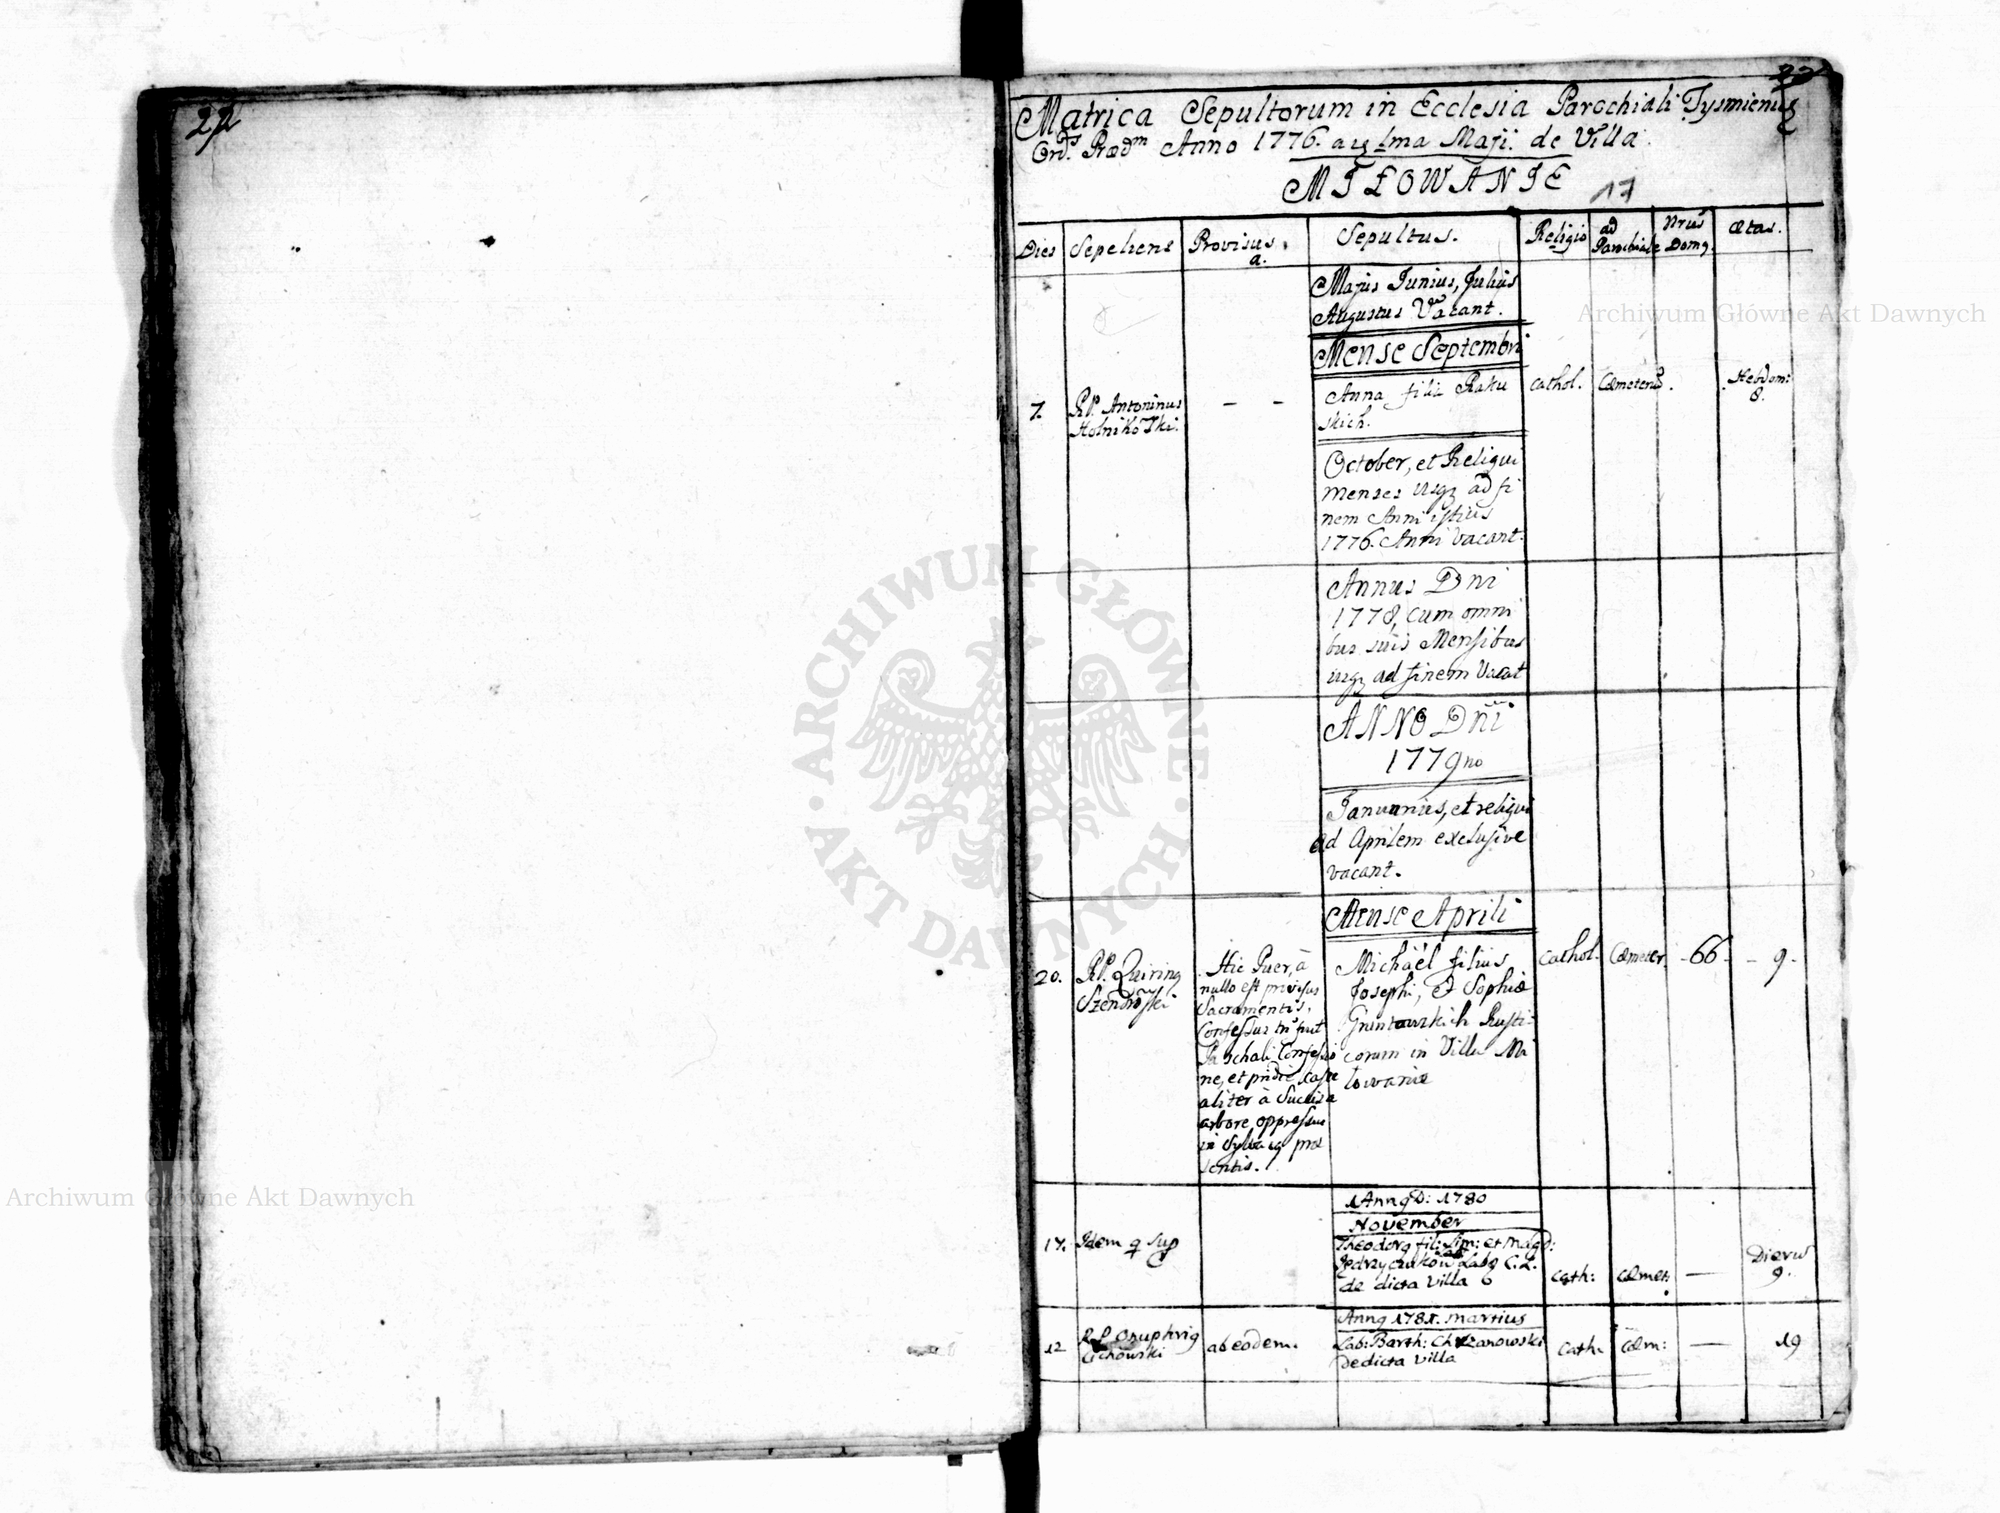 22
22
Matrica Sepultorum in Ecclesia Parochiali Tysmienicz
Ord.s Prædm Anno 1776. a 1ma Maji. de Villa.
MIŁOWANIE
17
Dies
Sepeliens
Provisus a.
Sepultus.
Religio
ad Parochiale
Nrus Domq.
ætas.
Majus Junius, Julius
Augustus Vacant.
Mense Septembri
7.
RP. Antoninus
Anna filia Raku
skich.
- -
cathol.
Hebdom:
8.
October, et Reliqui
menses usqz ad fi
nem Anni istius
1776. Anni vacant.
Annus Dni
1778, cum omni
bus suis Mensibus
usqz ad finem Vacat
ANNO Dni
1779no
Januarius, et reliqui
ad Aprilem exclusive
vacant.
Mense Aprili
20.
RP. Quirinq
Hic Puer, à
nullo est provisus
Sacramentis,
Confessus tn fuit
Paschali Confessio
ne, et pridie casu
aliter à Succisa
arbore oppressus
in Sylva
Michaël filius
Josephi, et Sophiæ
Rusti-
corum in Villa Mi
łowanie
cathol.
Cæmeter.
-66-
-9-
Annq D: 1780
November
17.
Idem q sup
Theodorq fil: Sim: et Magd:
de dicta Villa
cath:
cæmet:
—
Dierū
9.
Annq 1781. Martius
12
RP Onuphriq
Cichowski
ab eodem.
Lab: Barth: Chrzanowski
de dicta Villa
Cath.
Cæm:
—
19
Archiwum Główne Akt Dawnych
Archiwum Główne Akt Dawnych
ARCHIWUM GŁÓWNE
· AKT DAWNYCH ·